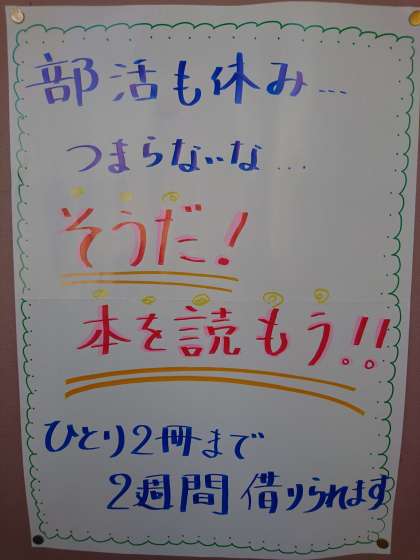 部活も休み...
つまらないな...
そうだ!
本を読もう!!
ひとり2冊まで
2週間借りられます